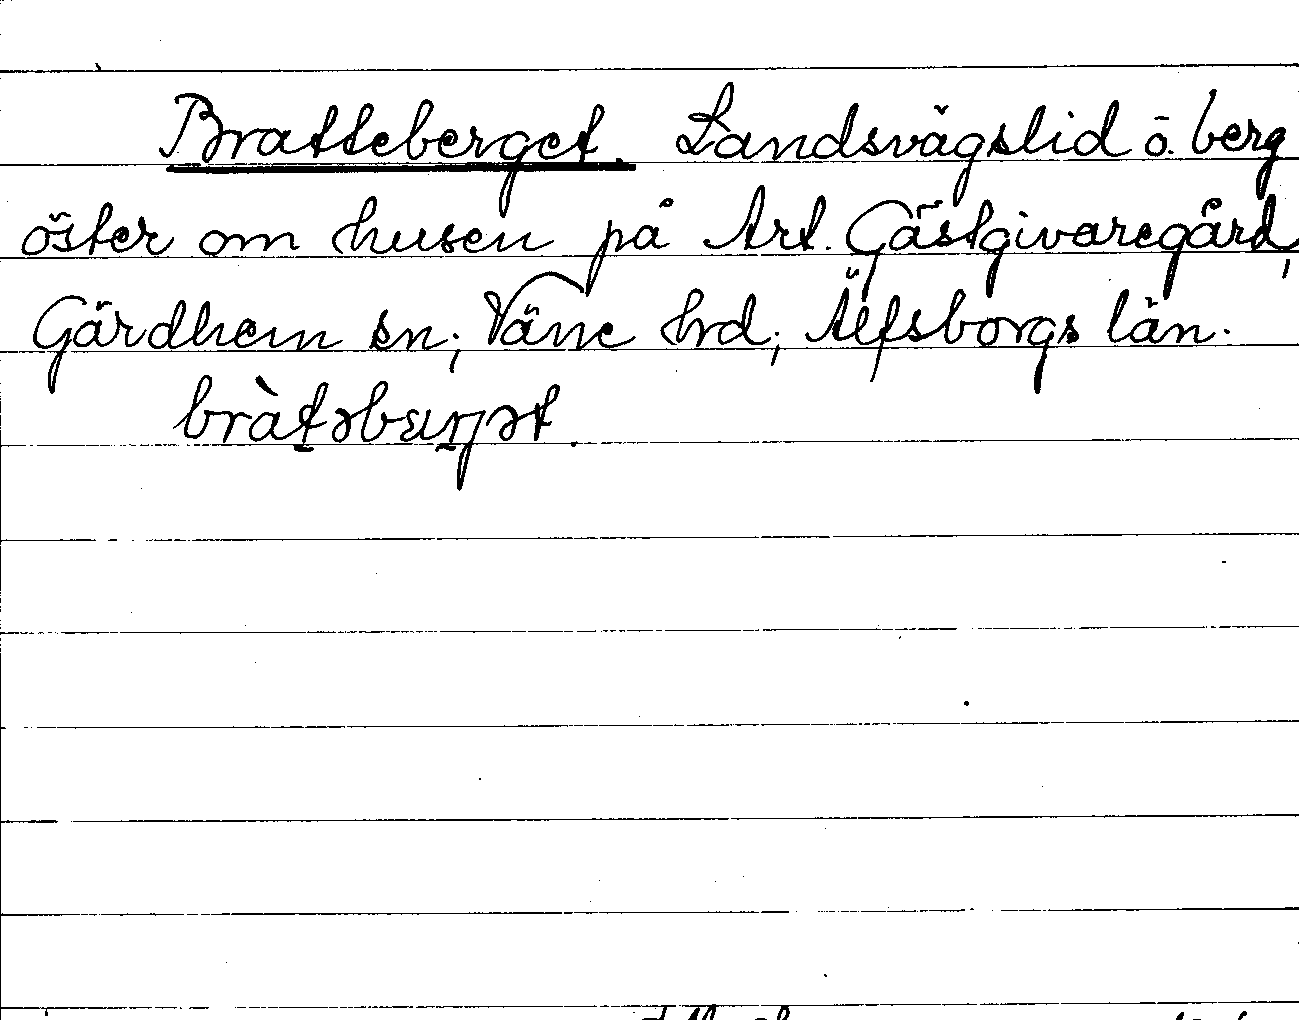 Bratteberget. Landsvägslid o. berg
öster om husen på Art. Gästgivaregård,
Gärdhem sn; Väne hrd; Älfsborgs län.